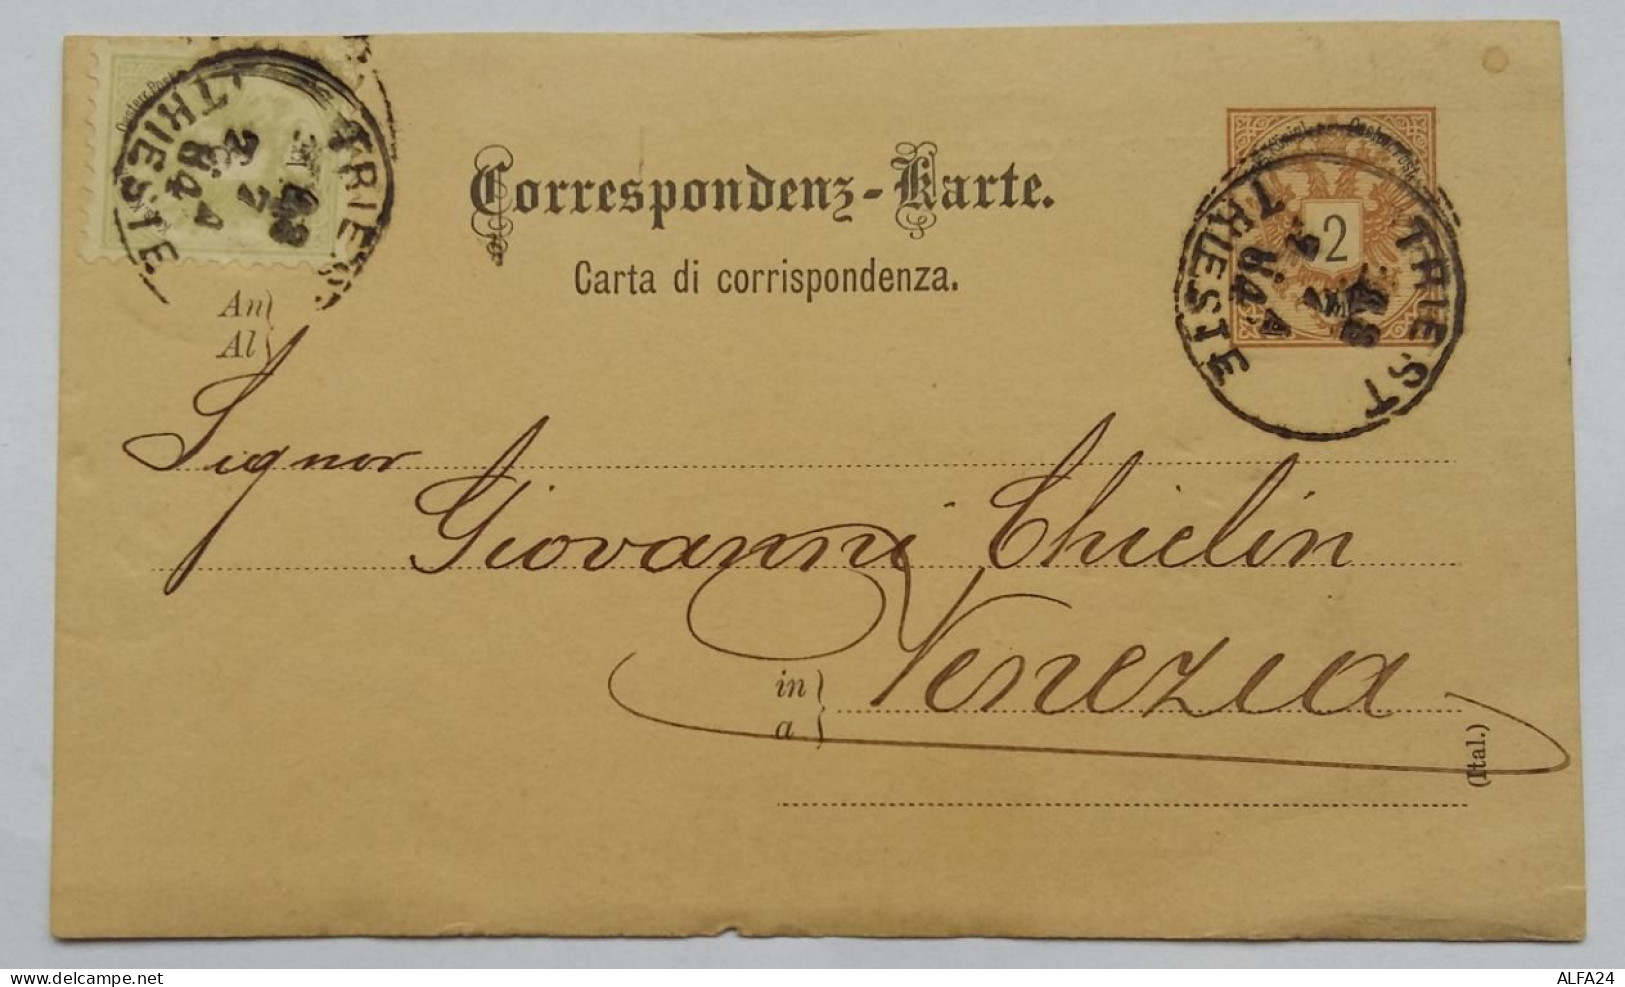 Oesterr. Post
TRIEST
TRIESTE
2 7
84 A
Correspondenz-Karte.
Carta di corrispondenza.
2
TRIEST
TRIESTE
7
84 A
An
Al
Signor
Giovanni Chielin
in
a
Venezia
(Ital.)
www.delcampe.net
ALFA24